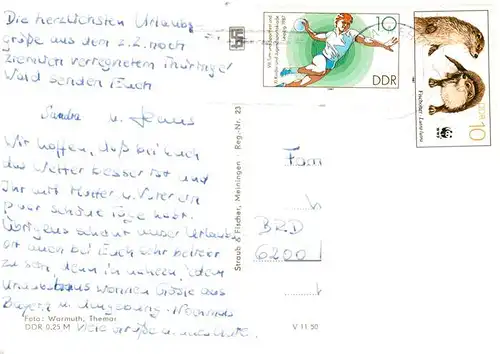 Die herzlichsten Urlaubs-
grüße aus dem z.Z. noch
ziemlich verregneten Thüringer
Wald senden Euch
Sandra u. Jens
Wir hoffen, daß bei euch
das Wetter besser ist und
Ihr mit Mutter u. Vater ein
paar schöne Tage habt.
Übrigens scheint unser Urlaubs-
ort auch bei Euch sehr beliebt
zu sein, denn in unserem
Urlauberhaus wohnen Gäste aus
Bayern u.
Viele Grüße u.
Foto: Warmuth, Themar
DDR 0,25 M
V 11 50
Straub & Fischer, Meiningen · Reg-Nr. 23
VIII. Turn- und Sportfest und
XI. Kinder- und Jugendspartakiade
Leipzig 1987
10
DDR
Fischotter Lutra lutra
DDR 10
WWF
Fam
BRD
6200